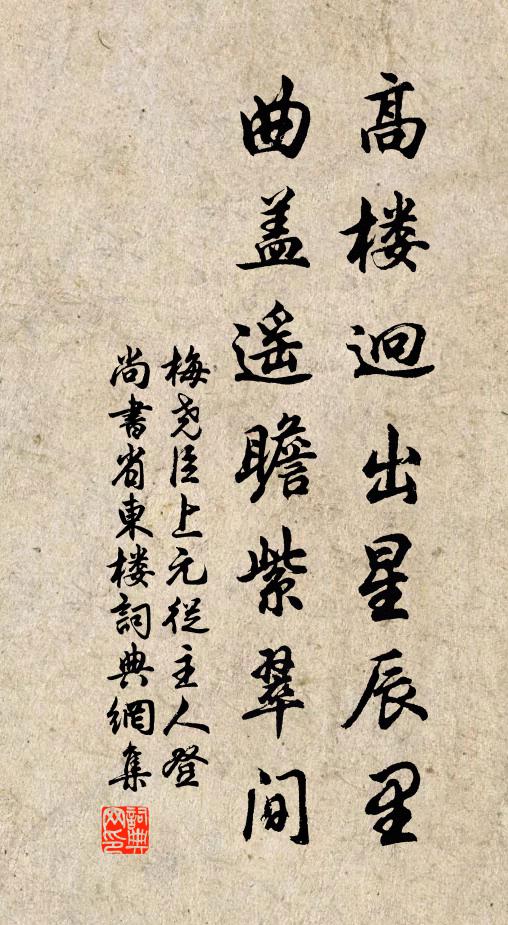 高楼迥出星辰里
曲盖遥瞻紫翠间
梅尧臣上元從主人登
尚書省東楼詞典網集
詞典
网印